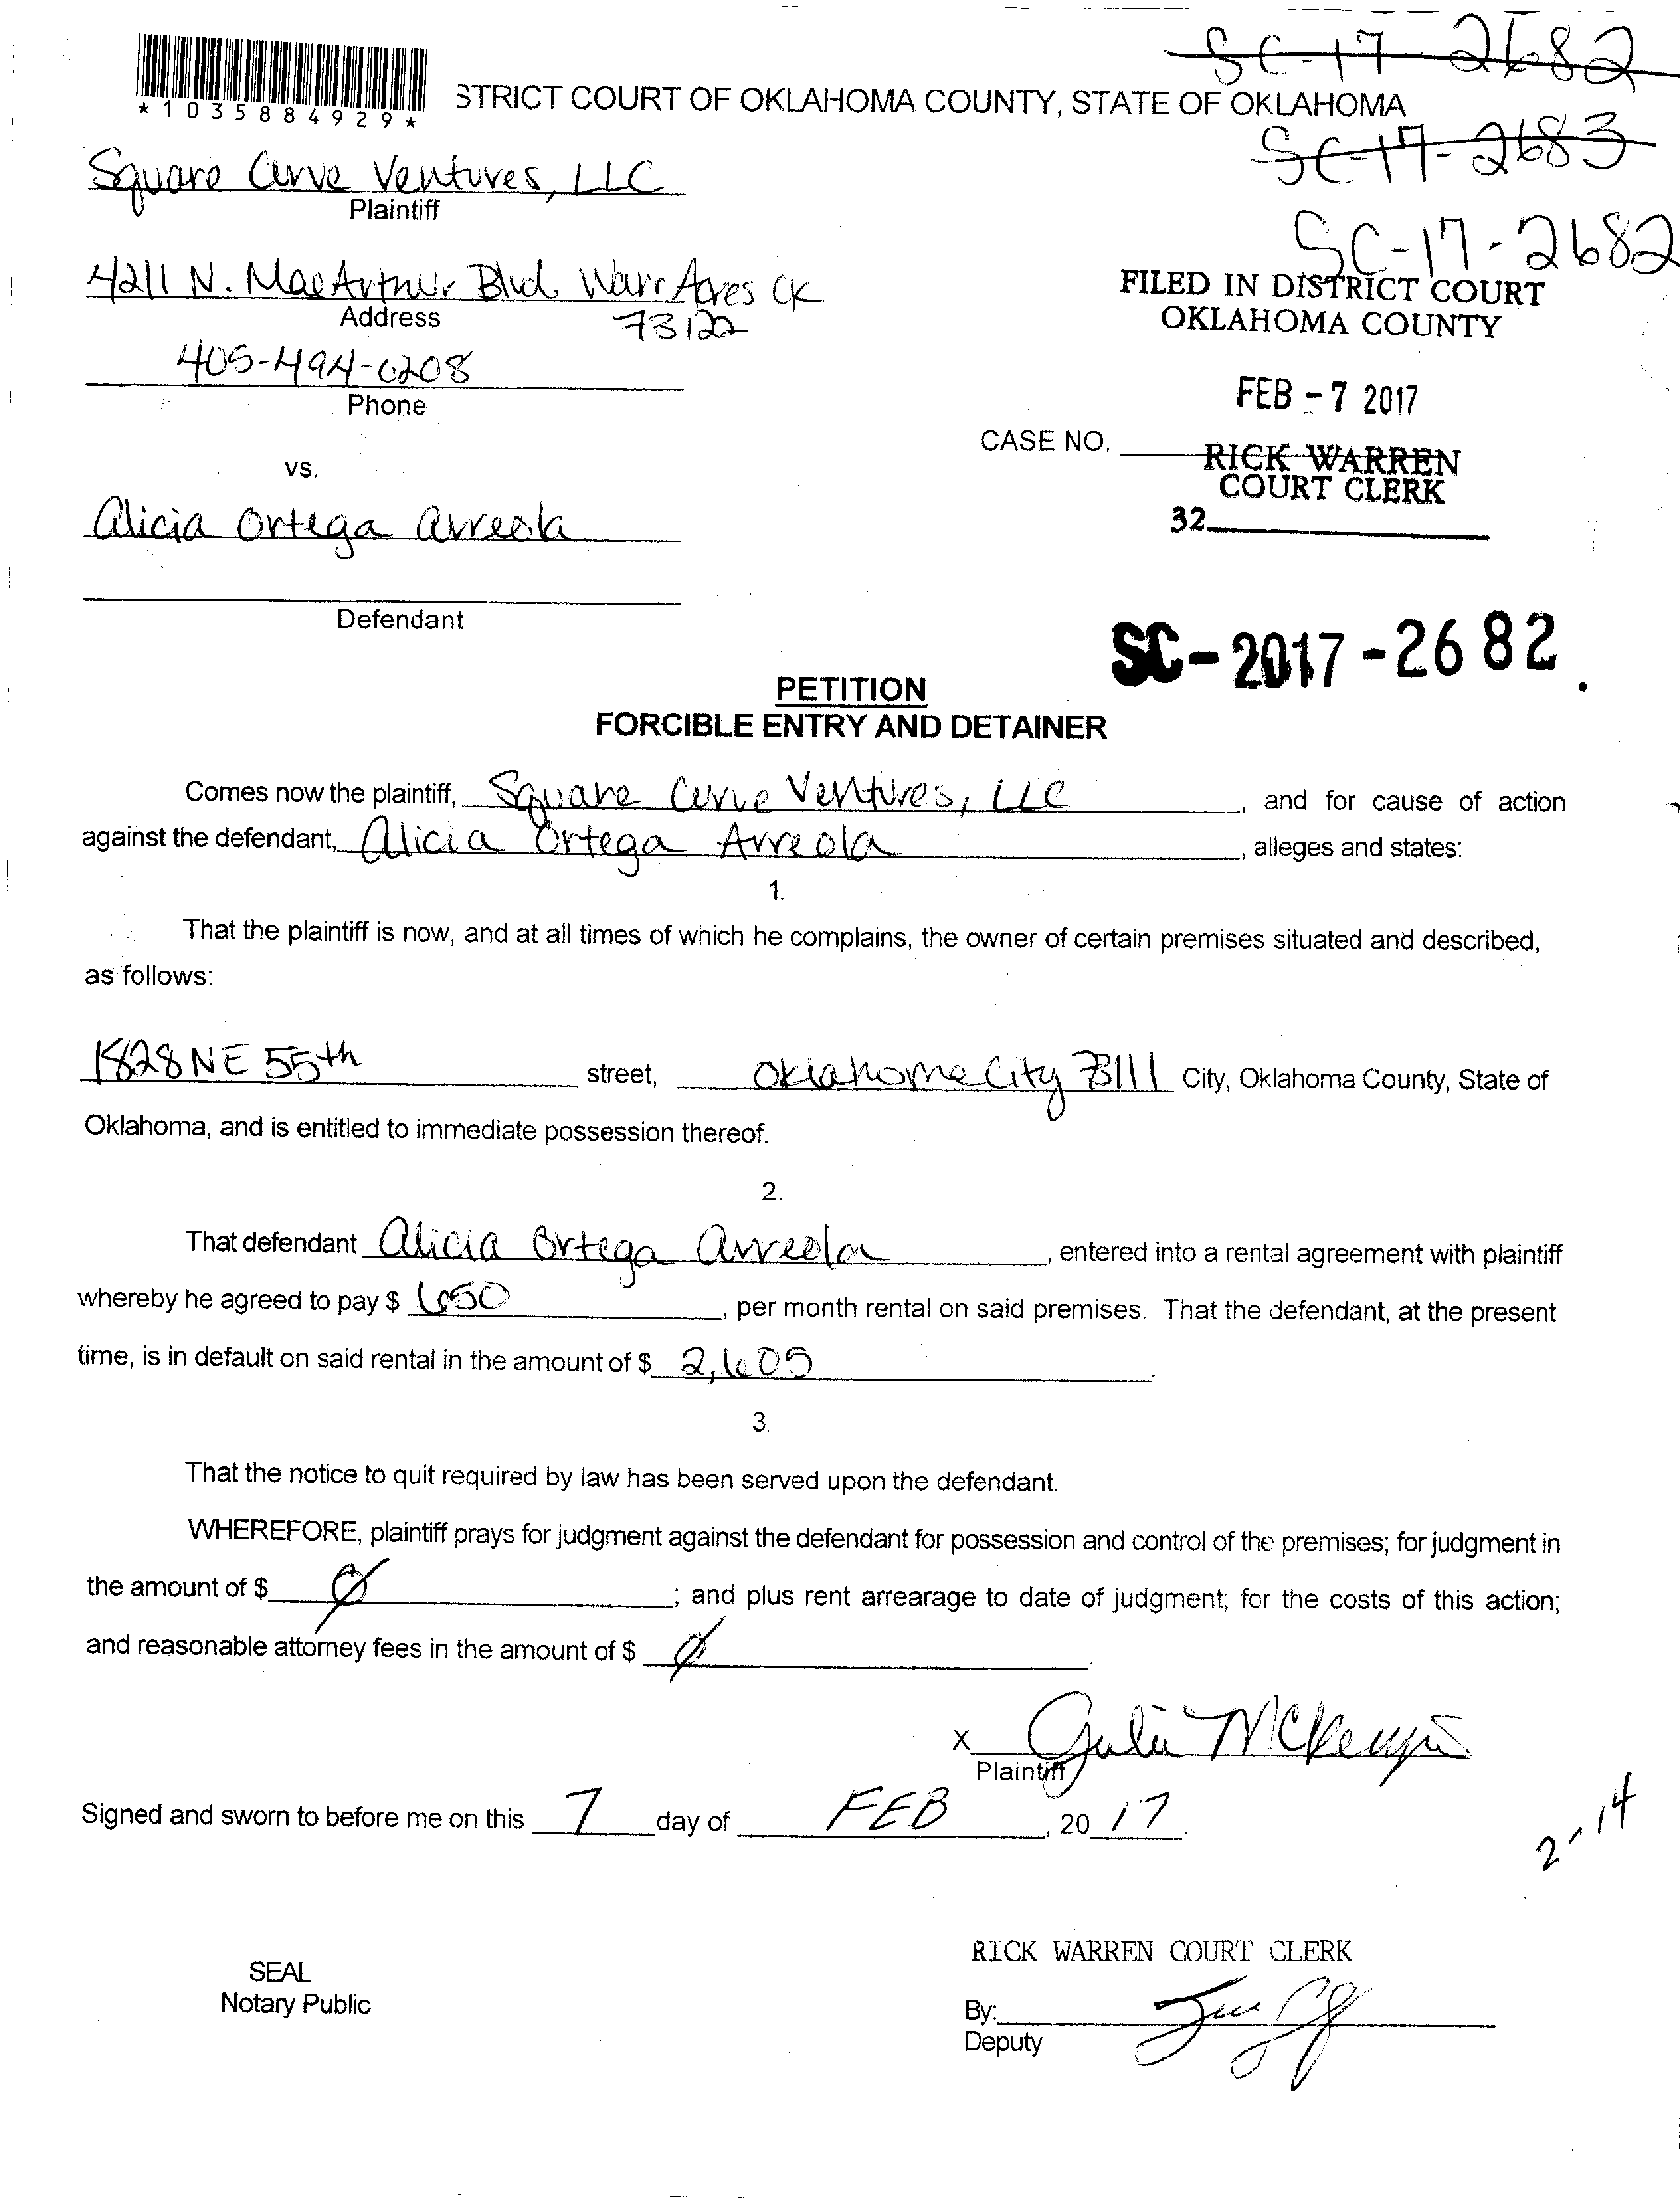 SC-17-2682
*1035884929*
STRICT COURT OF OKLAHOMA COUNTY, STATE OF OKLAHOMA
SC-17-2683
Square Curve Ventures, LLC
Plaintiff
SC-17-2682
4211 N. MacArthur Blvd. Warr Acres OK
Address
73122
FILED IN DISTRICT COURT
OKLAHOMA COUNTY
405-494-0208
Phone
FEB - 7 2017
CASE NO.
RICK WARREN
COURT CLERK
vs.
32
Alicia Ortega Arreola
Defendant
SC-2017-2682
PETITION
FORCIBLE ENTRY AND DETAINER
Comes now the plaintiff, Square Curve Ventures, LLC, and for cause of action
against the defendant, Alicia Ortega Arreola, alleges and states:
1.
That the plaintiff is now, and at all times of which he complains, the owner of certain premises situated and described,
as follows:
1828 NE 55th street, Oklahoma City 73111 City, Oklahoma County, State of
Oklahoma, and is entitled to immediate possession thereof.
2.
That defendant Alicia Ortega Arreola, entered into a rental agreement with plaintiff
whereby he agreed to pay $ 650, per month rental on said premises. That the defendant, at the present
time, is in default on said rental in the amount of $ 2,605.
3.
That the notice to quit required by law has been served upon the defendant.
WHEREFORE, plaintiff prays for judgment against the defendant for possession and control of the premises; for judgment in
the amount of $ Ø; and plus rent arrearage to date of judgment; for the costs of this action;
and reasonable attorney fees in the amount of $ Ø.
X Julie McKenzie
Plaintiff
Signed and sworn to before me on this 7 day of FEB, 20 17.
2-14
RICK WARREN COURT CLERK
SEAL
Notary Public
By:
Deputy